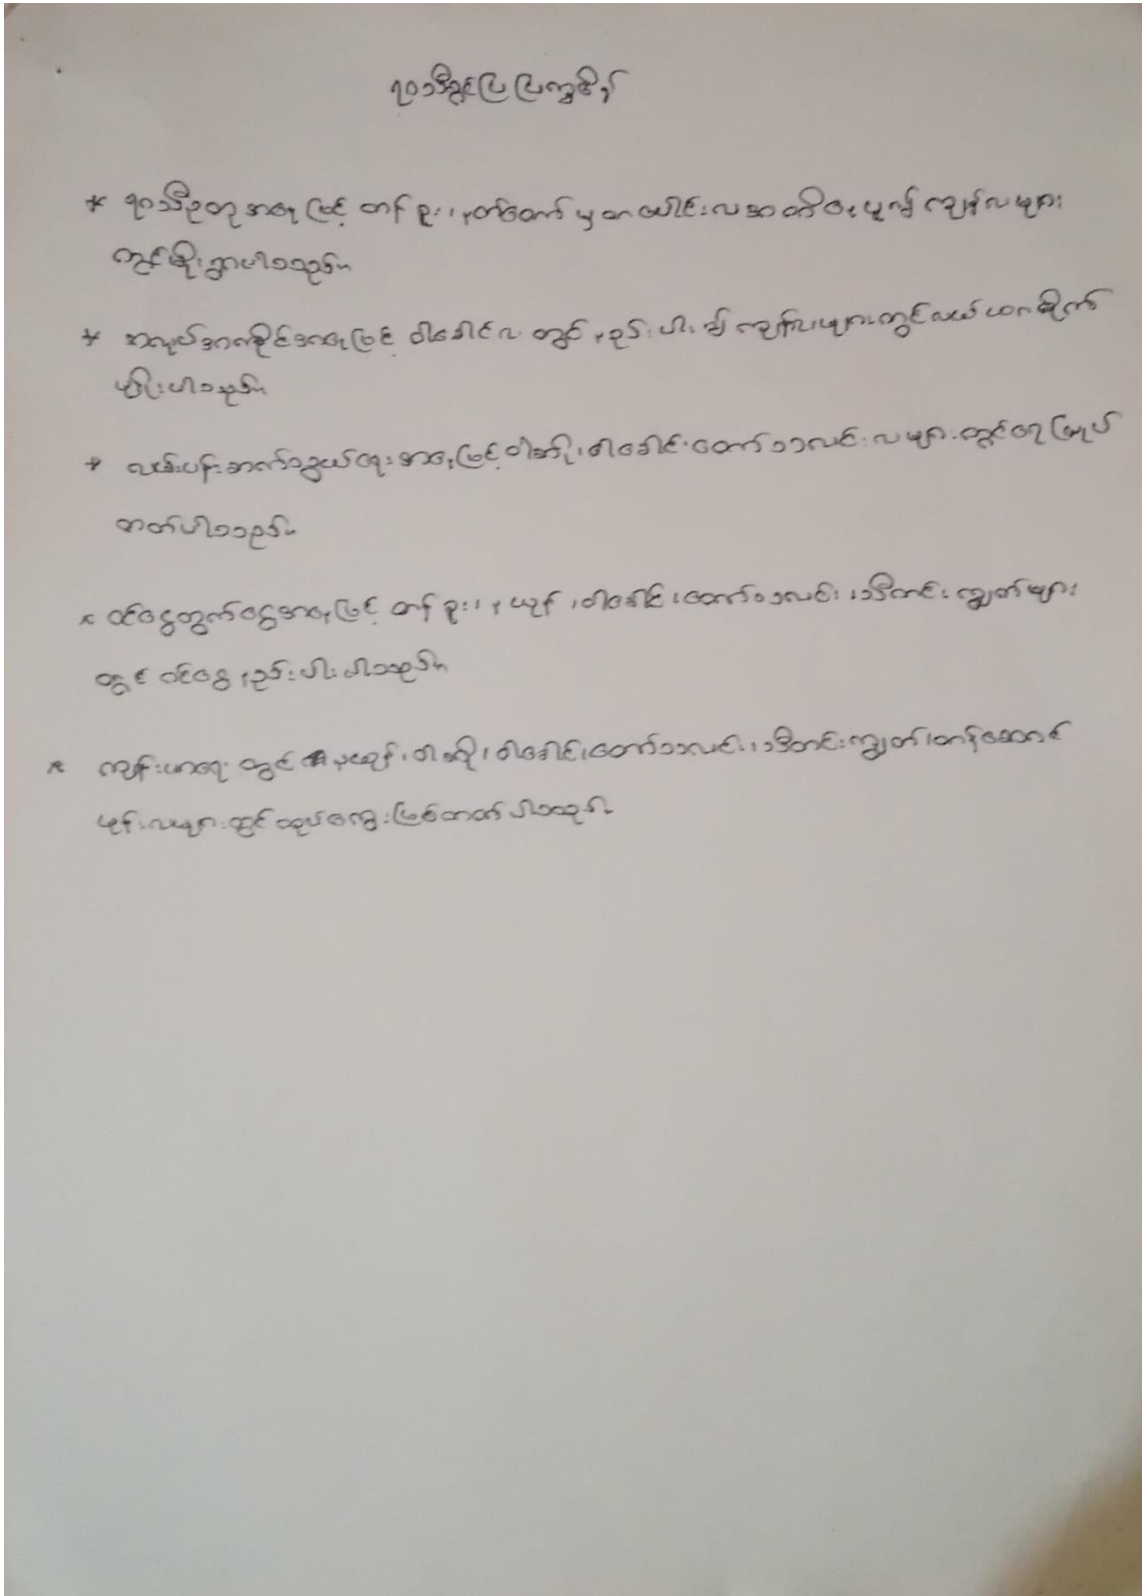 ရာသီခွင်ပြ ပြက္ခဒိန်
* ရာသီဥတု အနေဖြင့် တန်ခူး၊ နတ်တော် မှ တပေါင်းလအထိ နေပူ၍ ကျန်လများ
တွင် မိုးရွာပါသည်။
* အလုပ်အကိုင်အနေဖြင့် ဝါခေါင်လ တွင် နည်းပါး၍ ကျန်လများတွင် လယ်ယာစိုက်
မျိုးပါသည်။
* လမ်းပန်းဆက်သွယ်ရေး အနေဖြင့် ဝါဆို၊ ဝါခေါင်၊ တော်သလင်း လများတွင် ရေမြုပ်
တတ်ပါသည်။
* ဝင်ငွေထွက်ငွေအနေဖြင့် တန်ခူး၊ နယုန်၊ ဝါခေါင်၊ တော်သလင်း၊ သီတင်းကျွတ်များ
တွင် ဝင်ငွေ နည်းပါးပါသည်။
* ကျန်းမာရေး တွင် နယုန်၊ ဝါဆို၊ ဝါခေါင်၊ တော်သလင်း၊ သီတင်းကျွတ်၊ တန်ဆောင်
မုန်းလများတွင် တုပ်ကွေးဖြစ်တတ်ပါသည်။